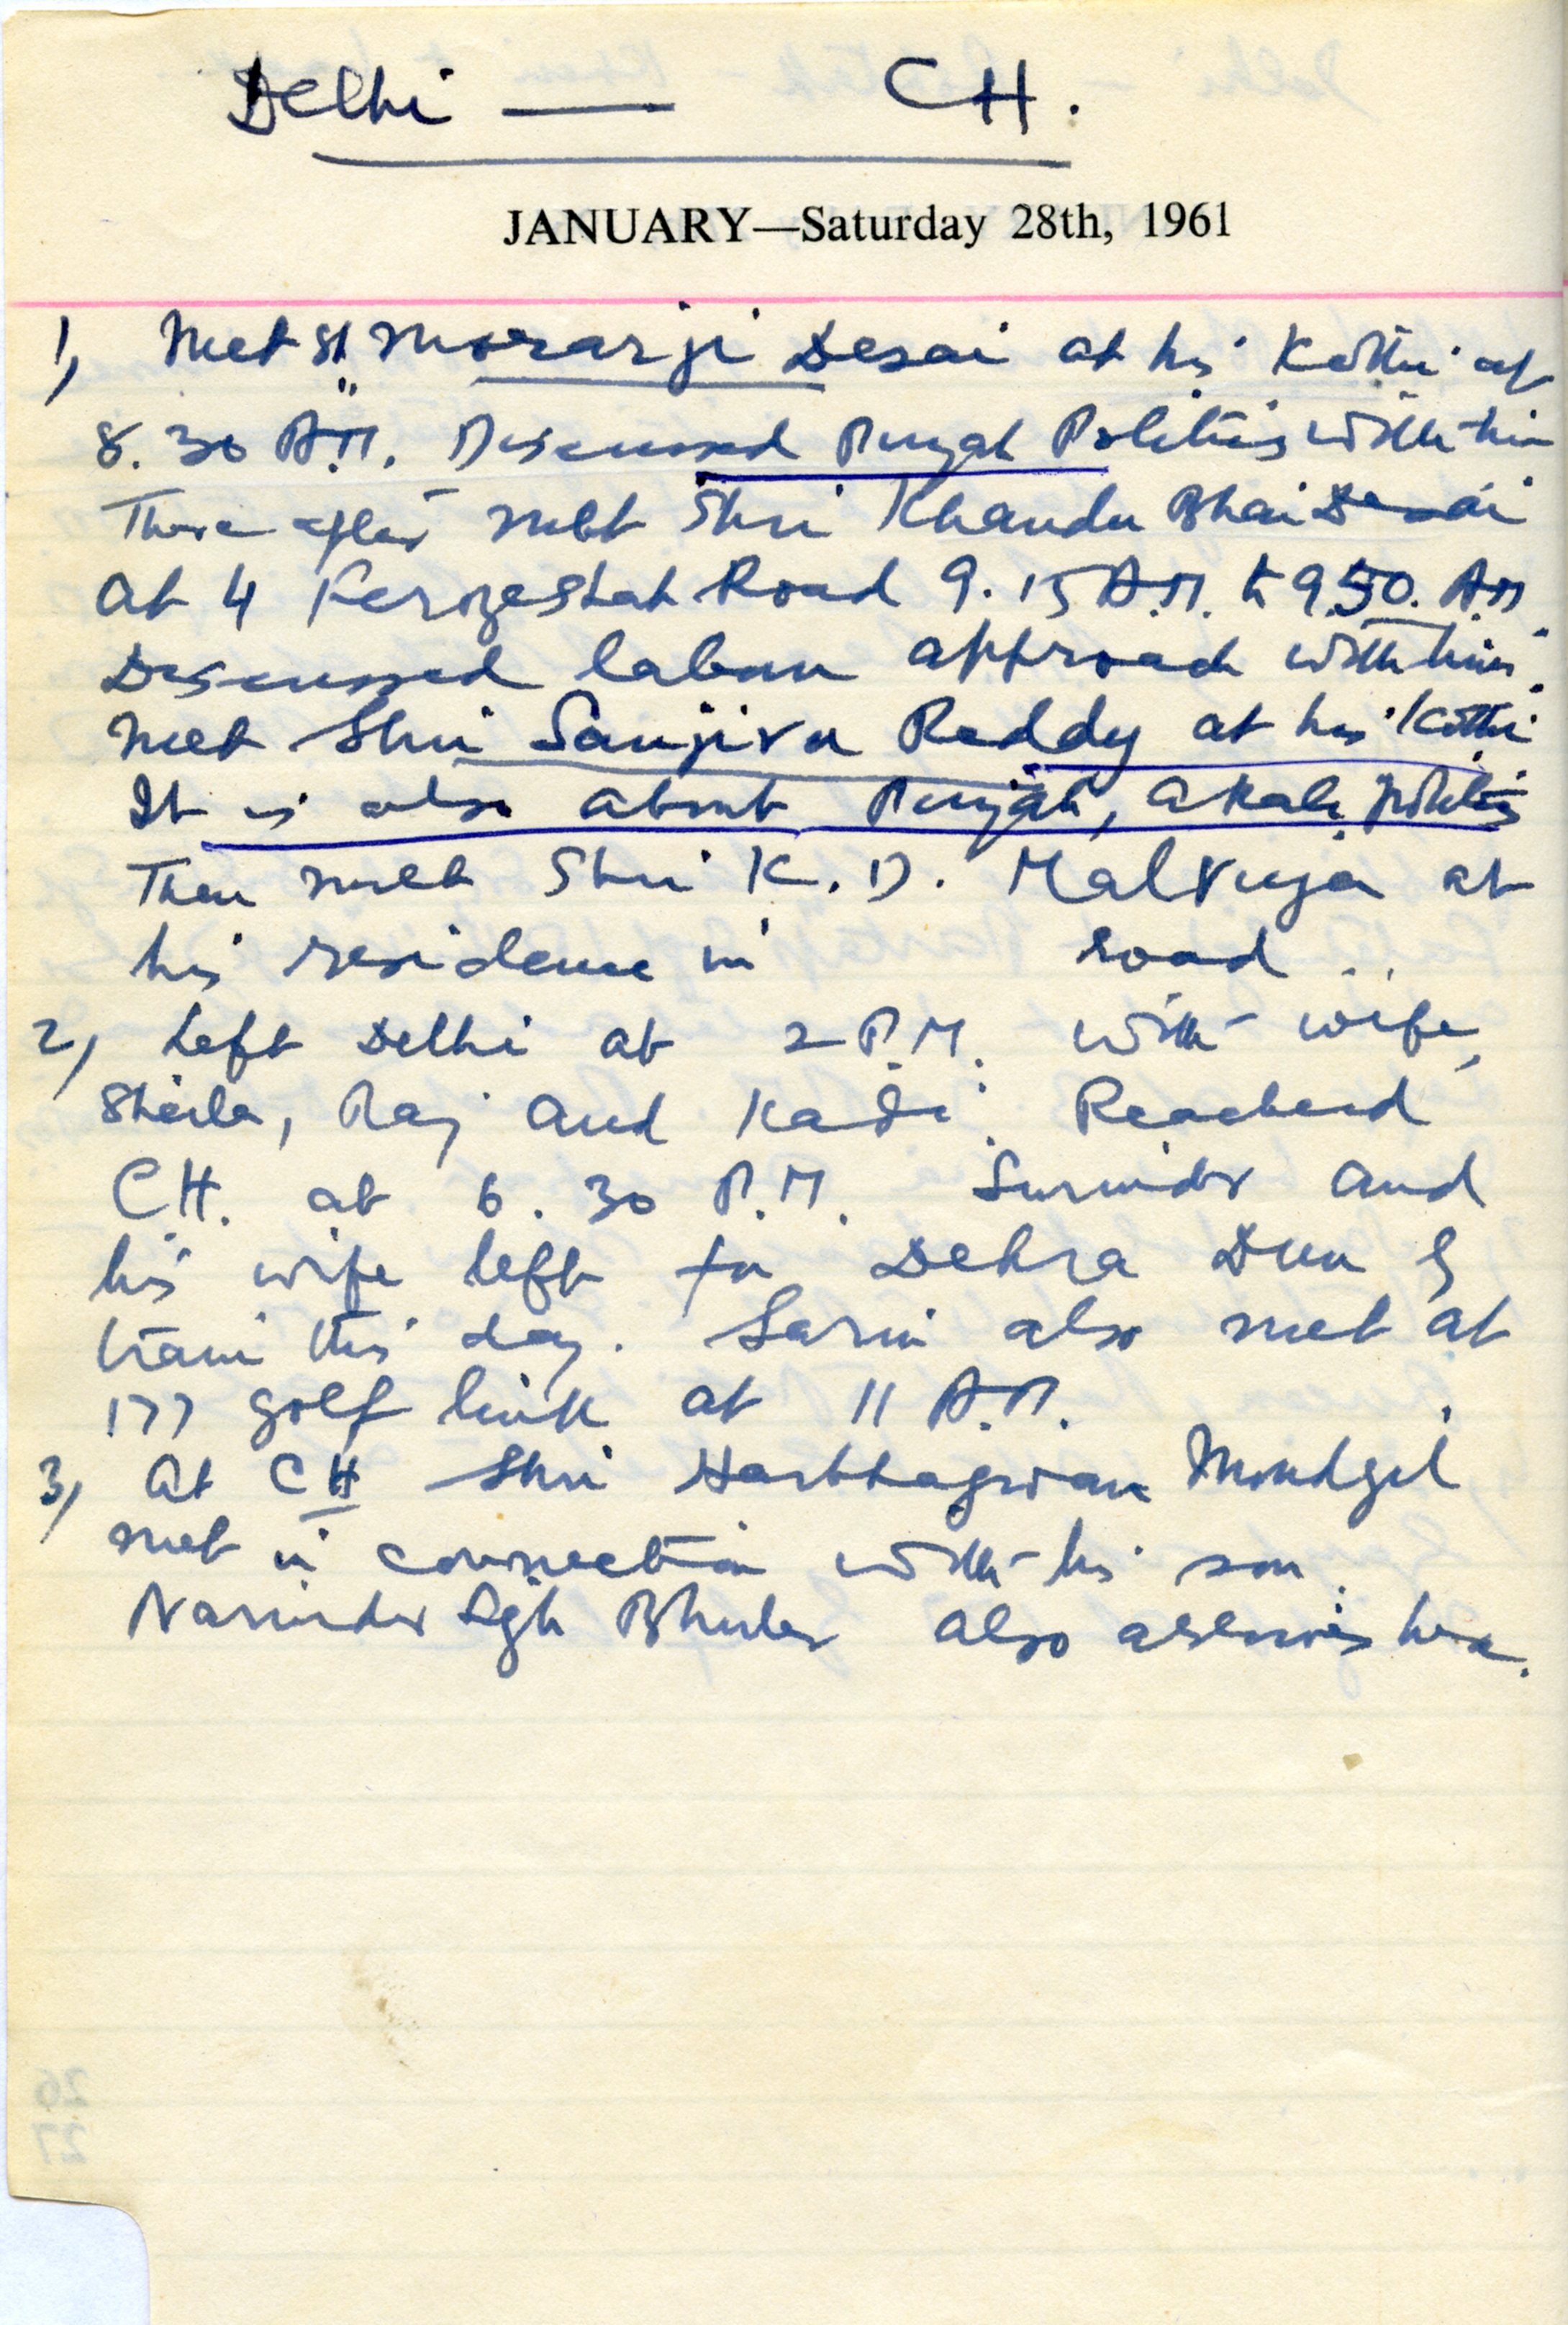 Delhi — CH.
JANUARY—Saturday 28th, 1961
1, Met Sh Morarji Desai at his Kothi at
8.30 A.M. Discussed Punjab Politics with him
There after met Shri Khandu Bhai Desai
at 4 Ferozeshah Road 9.15 A.M. to 9.50. A.M
Discussed labour approach with him.
Met Shri Sanjiva Reddy at his Kothi
It is also about Punjab, Akali politics
Then met Shri K. D. Malviya at
his residence in road ..
2, Left Delhi at 2 P.M. with wife,
Sheila, Raj and Kadi. Reached
CH. at 6.30 P.M. Surinder and
his wife left for Dehra Dun by
train this day. Sarin also met at
177 golf link at 11 A.M.
3, At CH Shri Harbhagwan Moudgil
met in connection with his son.
Narinder Sgh Bhuler also